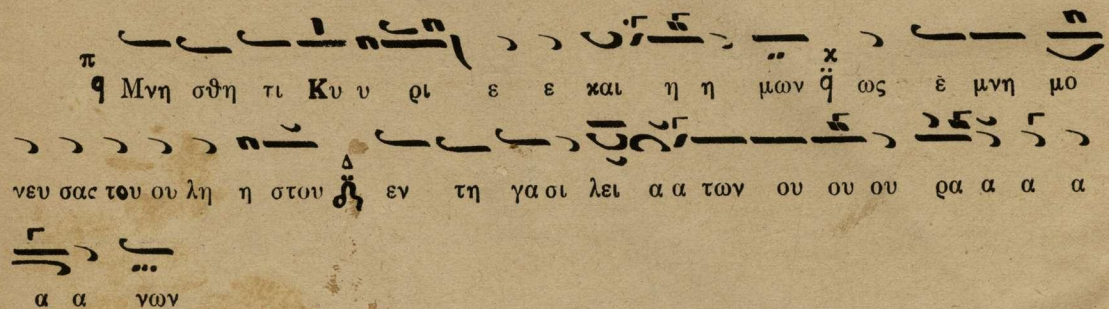 π
ϙ Μνη σθη τι Κυ υ ρι ε ε και η η μων κ ϙ ως ἐ μνη μο
νευ σας του ου λη η στου Δ εν τη γα σι λει α α των ου ου ου ρα α α α
α α νων